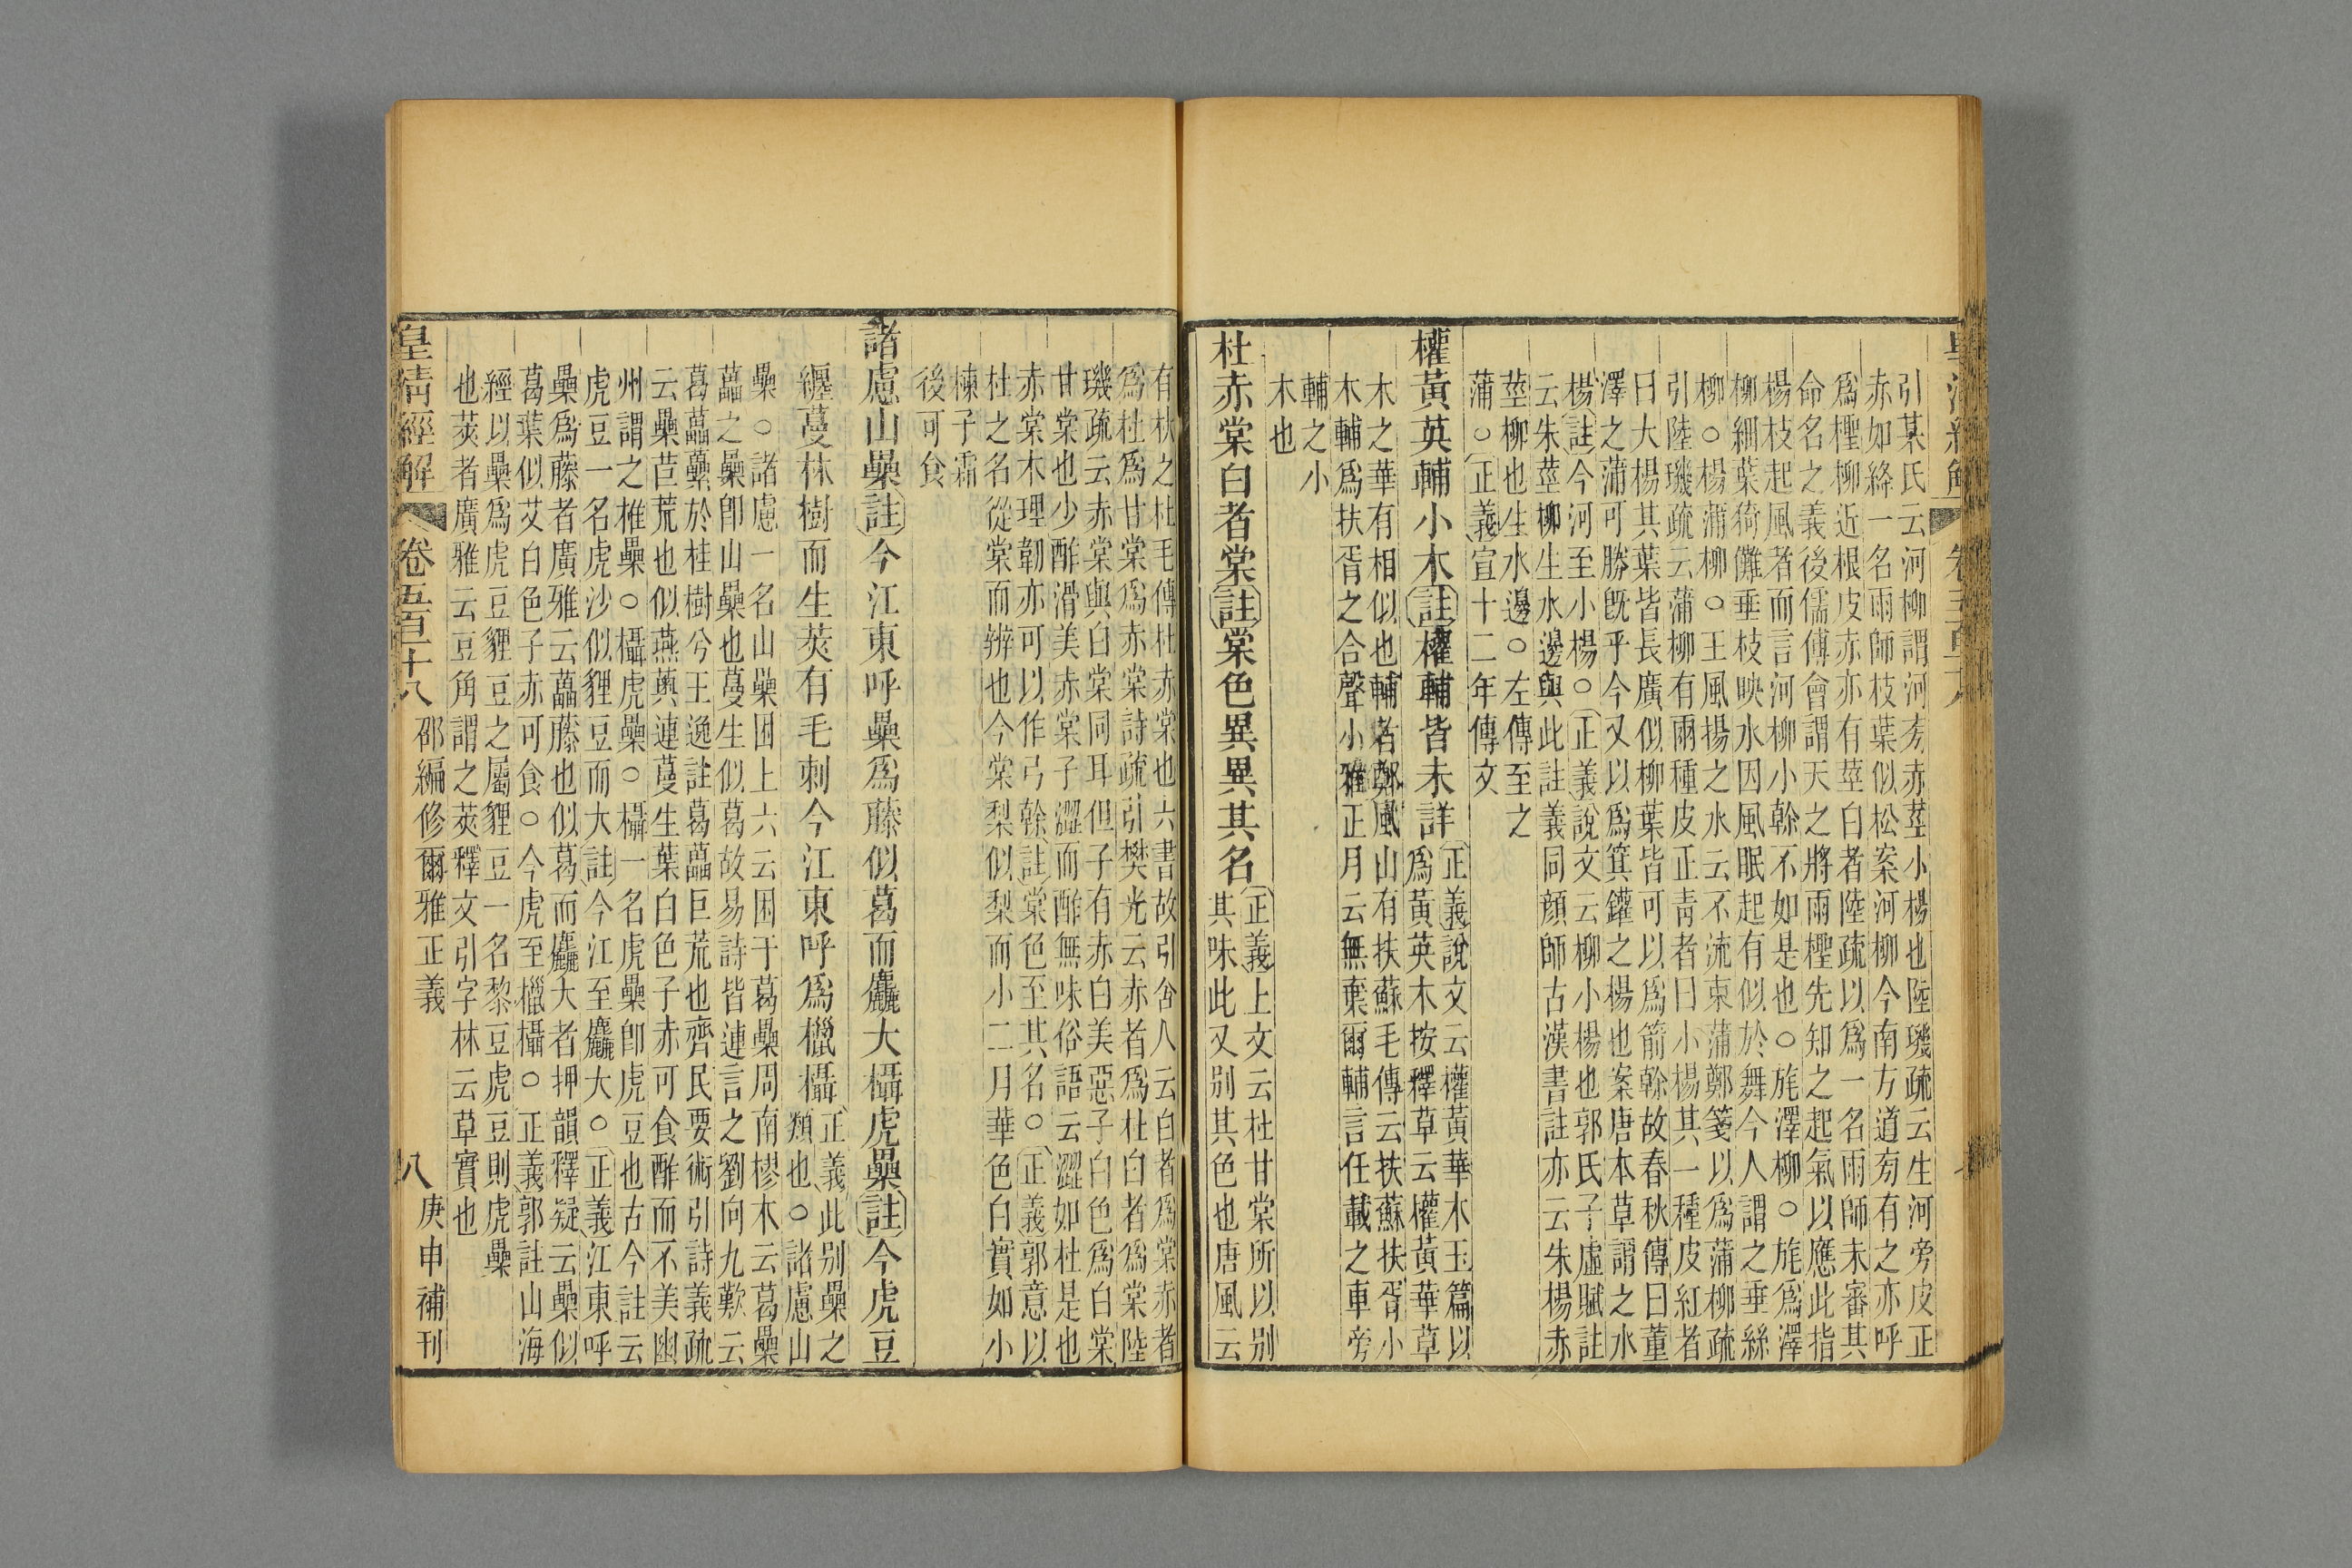 引某氏云河柳謂河旁赤莖小楊也陸璣疏云生河旁皮正
赤如絳一名雨師枝葉似松案河柳今南方道旁有之亦呼
爲檉柳近根皮赤亦有莖白者陸疏以爲一名雨師未審其
命名之義後儒傅會謂天之將雨檉先知之起氣以應此指
楊枝起風者而言河柳小榦不如是也○旄澤柳○旄爲澤
柳細葉猗儺垂枝映水因風眠起有似於舞今人謂之垂絲
柳○楊蒲柳○王風揚之水云不流束蒲鄭箋以爲蒲柳疏
引陸璣疏云蒲柳有兩種皮正青者曰小楊其一種皮紅者
曰大楊其葉皆長廣似柳葉皆可以爲箭榦故春秋傳曰董
澤之蒲可勝旣乎今又以爲箕鑵之楊也案唐本草謂之水
楊註今河至小楊○正義說文云柳小楊也郭氏子虛賦註
云朱莖柳生水邊與此註義同顔師古漢書註亦云朱楊赤
莖柳也生水邊○左傳至之
蒲○正義宣十二年傳文
權黃英輔小木註權輔皆未詳正義說文云權黃華木玉篇以
爲黃英木按釋草云權黃華草
木之華有相似也輔者鄭風山有扶蘇毛傳云扶蘇扶胥小
木輔爲扶胥之合聲小雅正月云無棄爾輔言任載之車旁
輔之小
木也
杜赤棠白者棠註棠色異異其名正義上文云杜甘棠所以别
其味此又别其色也唐風云
有杕之杜毛傳杜赤棠也六書故引舍人云白者爲棠赤者
爲杜爲甘棠爲赤棠詩疏引樊光云赤者爲杜白者爲棠陸
璣疏云赤棠與白棠同耳但子有赤白美惡子白色爲白棠
甘棠也少酢滑美赤棠子澀而酢無味俗語云澀如杜是也
赤棠木理韌亦可以作弓榦註棠色至其名○正義郭意以
杜之名從棠而辨也今棠梨似梨而小二月華色白實如小
楝子霜
後可食
諸慮山櫐註今江東呼櫐爲藤似葛而麤大欇虎櫐註今虎豆
纏蔓林樹而生莢有毛刺今江東呼爲㯿欇正義此别櫐之
類也○諸慮山
櫐○諸慮一名山櫐困上六云困于葛櫐周南樛木云葛櫐
藟之櫐卽山櫐也蔓生似葛故易詩皆連言之劉向九歎云
葛藟虆於桂樹兮王逸註葛藟巨荒也齊民要術引詩義疏
云櫐苣荒也似燕薁連蔓生葉白色子赤可食酢而不美幽
州謂之椎櫐○欇虎櫐○欇一名虎櫐卽虎豆也古今註云
虎豆一名虎沙似貍豆而大註今江至麤大○正義江東呼
櫐爲藤者廣雅云藟藤也似葛而麤大者押韻釋疑云櫐似
葛葉似艾白色子赤可食○今虎至㯿欇○正義郭註山海
經以櫐爲虎豆貍豆之屬貍豆一名黎豆虎豆則虎櫐
也莢者廣雅云豆角謂之莢釋文引字林云草實也
皇清經解 卷五百十八 邵編修爾雅正義 八 庚申補刊